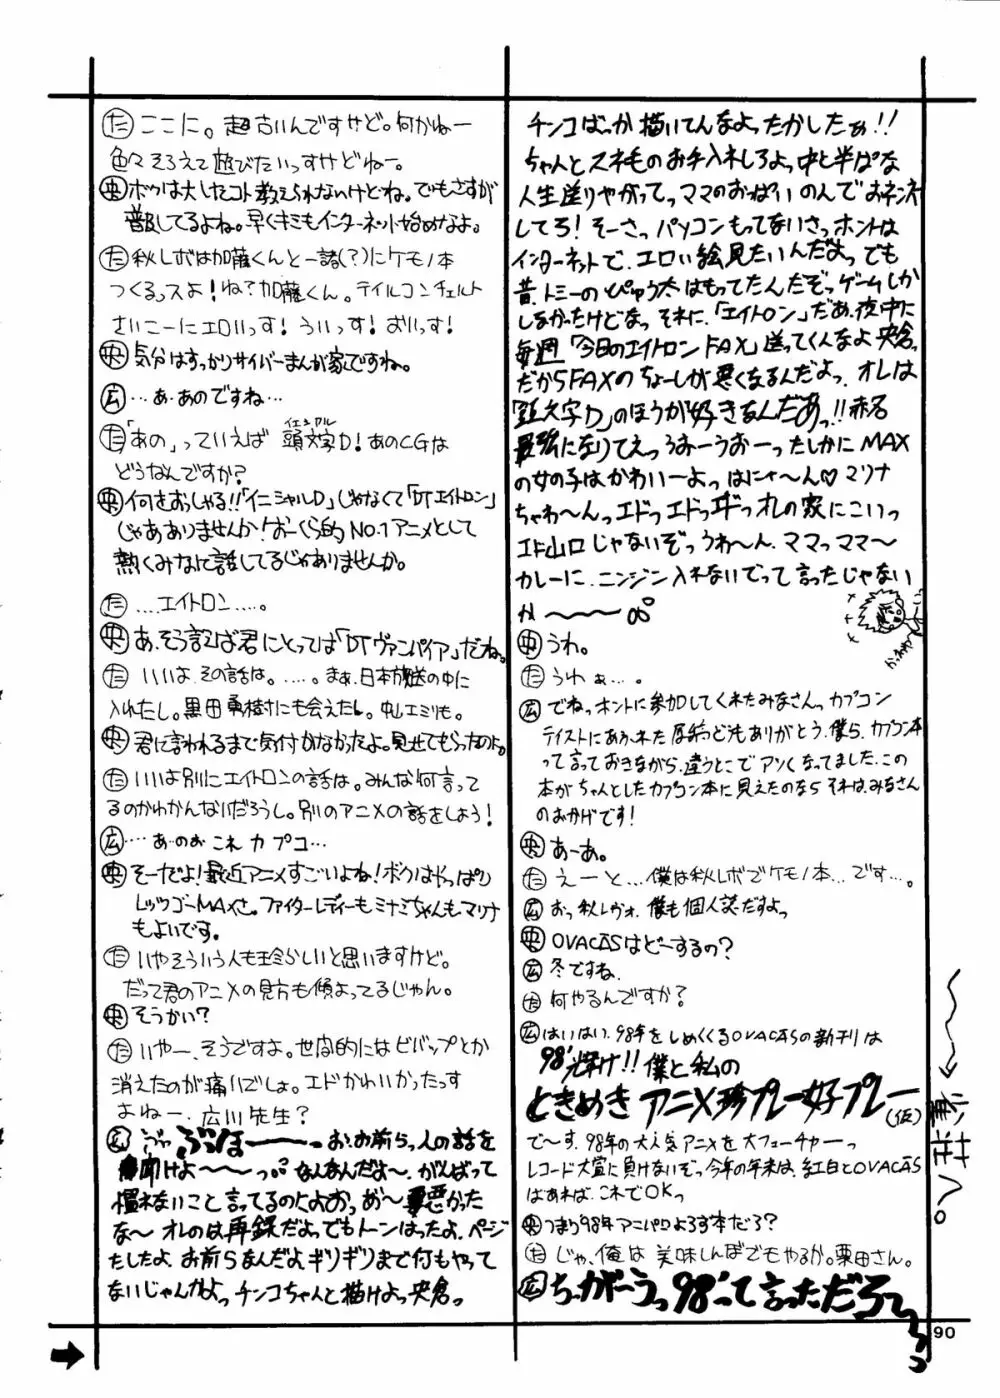 た ここに。超古いんですけど。何かねー
色々そろえて遊びたいっすけどねー。
央 ボクは大したコト教えられないけどね。でもさすが
普及してるよね。早くキミもインターネット始めなよ。
た 秋レボは加藤くんと一諸(?)にケモノ本
つくるっスよ!ね?加藤くん。テイルコンチェルト
さいこーにエロいっす!ういっす!おいっす!
央 気分はすっかりサイバーまんが家ですね。
広 …あ、あのですね…
た 「あの」っていえば 頭文字D!あのCGは
イニシャル
どうなんですか?
央 何をおっしゃる!!「イニシャルD」じゃなくて「DTエイトロン」
じゃありませんか!おーくら的NO.1アニメとして
熱くみなに話してるじゃありませんか。
た ‥‥エイトロン‥‥。
央 あ、そう言えば君にとっては「DTヴァンパイア」だね。
た いいよ、その話は。‥‥。まぁ、日本放送の中に
入れたし。黒田勇樹にも会えたし。中山エミリも。
央 君に言われるまで気付かなかったよ。見せてもらったのに。
た いいよ別にエイトロンの話は。みんな何言って
るのかわかんないだろうし。別のアニメの話をしよう!
広 …あーのぉ これ カプコ…
央 そーだよ!最近アニメすごいよね!ボクはやっぱり
レッツゴーMAXさ。ファイターレディーもミナミちゃんもマリナ
もよいです。
た いやそういう人も珍らしいと思いますけど。
だって君のアニメの見方も偏よってるじゃん。
央 そうかい?
た いやー、そうですよ。世間的にはビバップとか
消えたのが痛いでしょ。エドかわいかったっす
よねー、広川先生?
広 ぶっほーーー お、お前ら、人の話を
聞けよ〜〜っ なんなんだよ〜、がんばって
慣れないこと言ってるのによおっ あ〜悪かった
な〜 オレのは再録だよっ でもトーンはったよ、ページ
たしたよ、お前らなんだよギリギリまで何もやって
ないじゃんかよっ チンコちゃんと描けよっ 央倉っ
チンコばっか描いてんなよったかしたぁ!!
ちゃんとスネ毛のお手入れしろよっ 中と半ぱな
人生送りやがってっ ママのおっぱいのんでおネンネ
してろ!そーさっ パソコンもってないさっ ホントは
インターネットで、エロい絵見たいんだよっ でも
昔、トミーのぴゅう太はもってたんだぞっ ゲームしか
しなかったけどなっ それに、「エイトロン」だぁ、夜中に
毎週「今日のエイトロンFAX」送ってくんなよ央倉っ
だからFAXのちょーしが悪くなるんだよっ、オレは
「頭文字D」のほうが好きなんだあっ!!赤名
最強になりてえっ うおーうおーっ たしかに MAX
の女の子はかわいーよっ はにゃ〜ん♡ マリナ
ちゃわ〜んっ エドっ エドっ エドっ オレの家にこいっ
江戸山口じゃないぞっ うわ〜ん、ママっママ〜
カレーに、ニンジン入れないでって言ったじゃない
か〜〜〜
央 うわ。
た うわぁ…。
広 でねっ ホントに参加してくれたみなさんっ カプコン
テイストにあふれた原稿どもありがとう、僕ら、カプコン本
って言っておきながら、違うとこでアツくなってました、この
本がちゃんとしたカプコン本に見えたのなら それは、みなさん
のおかげです!
央 あーあ。
た えーと…僕は秋レボでケモノ本…です…。
広 おっ 秋レヴォ、僕も個人誌だすよっ
央 OVACASはどーするの?
広 冬ですね、
た 何やるんですか?
広 はいはい、98年をしめくくるOVACASの新刊は
98'輝け!!僕と私の
ときめき アニメ珍プレー好プレー(仮)
で〜す、98年の大人気アニメを大フューチャーっ
レコード大賞に負けないぞっ 今年の年末は、紅白とOVACAS
があれば、これでOKっ
央 つまり98年アニパロよろず本だろ?
た じゃ、俺は 美味しんぼでもやるか。栗田さん。
広 ちっがーうっ 98'って言っただろーっっっ
90